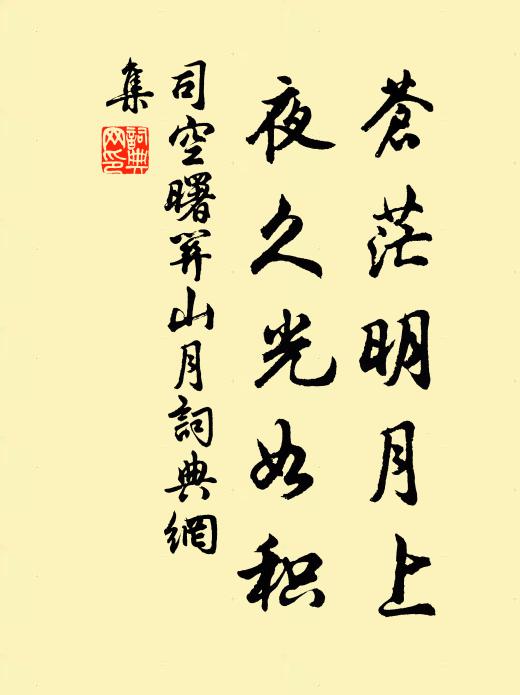 蒼茫明月上
夜久光如积
司空曙關山月詞典網
集
詞典
网印